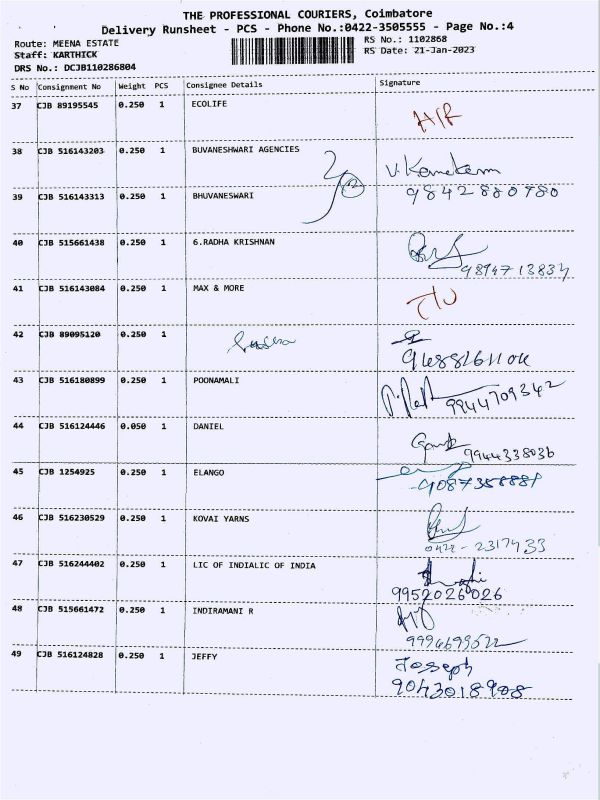 THE PROFESSIONAL COURIERS, Coimbatore
Delivery Runsheet - PCS - Phone No.:0422-3505555 - Page No.:4
Route: MEENA ESTATE
RS No.: 1102868
Staff: KARTHICK
RS Date: 21-Jan-2023
DRS No.: DCJB110286804
S No Consignment No Weight PCS Consignee Details Signature
37 CJB 89195545 0.250 1 ECOLIFE
38 CJB 516143203 0.250 1 BUVANESHWARI AGENCIES
39 CJB 516143313 0.250 1 BHUVANESWARI 9842880980
40 CJB 515661438 0.250 1 6.RADHA KRISHNAN
41 CJB 516143084 0.250 1 MAX & MORE
42 CJB 89095120 0.250 1
43 CJB 516180899 0.250 1 POONAMALI 9944709342
44 CJB 516124446 0.050 1 DANIEL
9944338036
45 CJB 1254925 0.250 1 ELANGO
46 CJB 516230529 0.250 1 KOVAI YARNS
0422-2317433
47 CJB 516244402 0.250 1 LIC OF INDIALIC OF INDIA
9952026026
48 CJB 515661472 0.250 1 INDIRAMANI R
49 CJB 516124828 0.250 1 JEFFY Joseph
9043018908